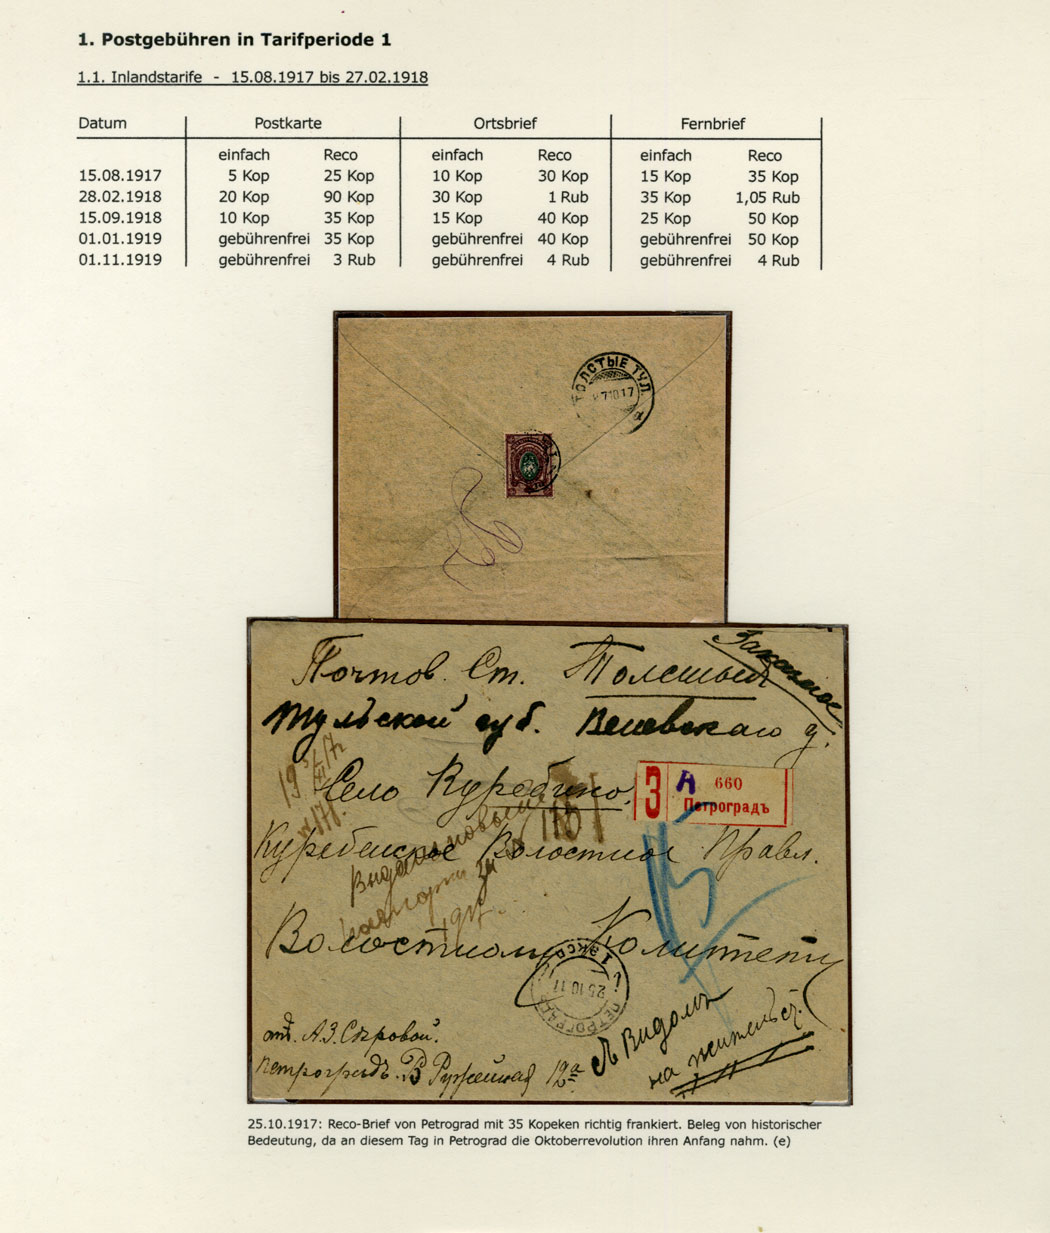 1. Postgebühren in Tarifperiode 1
1.1. Inlandstarife - 15.08.1917 bis 27.02.1918
Datum Postkarte Ortsbrief Fernbrief
einfach Reco einfach Reco einfach Reco
15.08.1917 5 Kop 25 Kop 10 Kop 30 Kop 15 Kop 35 Kop
28.02.1918 20 Kop 90 Kop 30 Kop 1 Rub 35 Kop 1,05 Rub
15.09.1918 10 Kop 35 Kop 15 Kop 40 Kop 25 Kop 50 Kop
01.01.1919 gebührenfrei 35 Kop gebührenfrei 40 Kop gebührenfrei 50 Kop
01.11.1919 gebührenfrei 3 Rub gebührenfrei 4 Rub gebührenfrei 4 Rub
ТОЛСТЫЕ ТУЛ.
71017
а
Заказное
Почтов. Ст. Толстыя
Тульской губ. Веневскаго у.
Село Куребино.
З А 660
Петроградъ
Куребенское Волостное Правл.
116
1917.
Волостному Комитету
1 ЭКСП.
25 10 17
ПЕТРОГРАДЪ
отъ А. З. Серовой.
Съ Видомъ
на жительст.
Петроградъ. В Ружейная 12а
25.10.1917: Reco-Brief von Petrograd mit 35 Kopeken richtig frankiert. Beleg von historischer
Bedeutung, da an diesem Tag in Petrograd die Oktoberrevolution ihren Anfang nahm. (e)